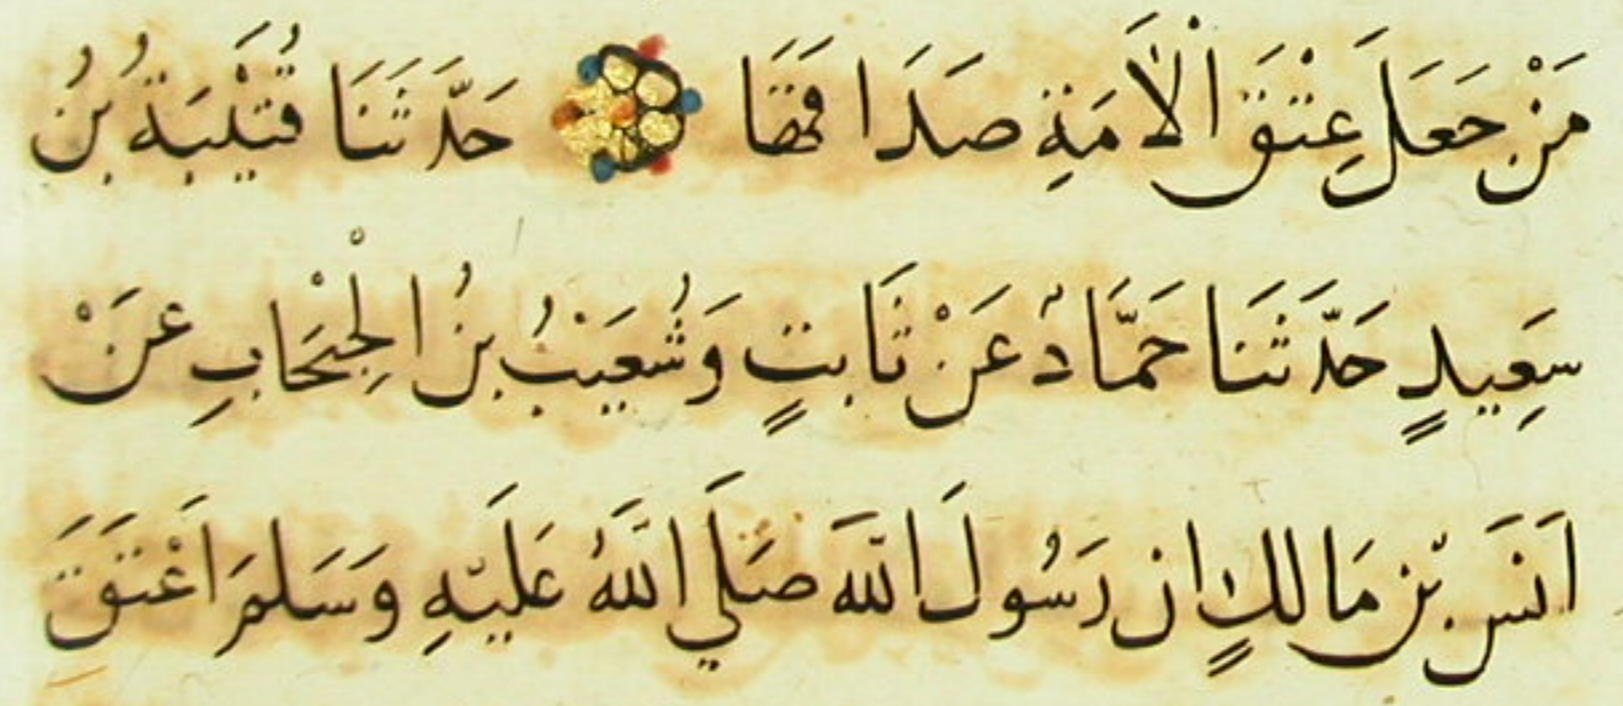 مَنْ جَعَلَ عِتْقَ الْأَمَةِ صَدَاقَهَا حَدَّثَنَا قُتَيْبَةُ بْنُ
سَعِيدٍ حَدَّثَنَا حَمَّادٌ عَنْ ثَابِتٍ وَشُعَيْبُ بْنُ الْحَبْحَابِ عَنْ
اَنَسَ بْنِ مَالِكٍ ان رَسُولَ اللَّهَ صَلَّي اللَّهُ عَلَيْهِ وَسَلَّمَ اَعْتَقَ